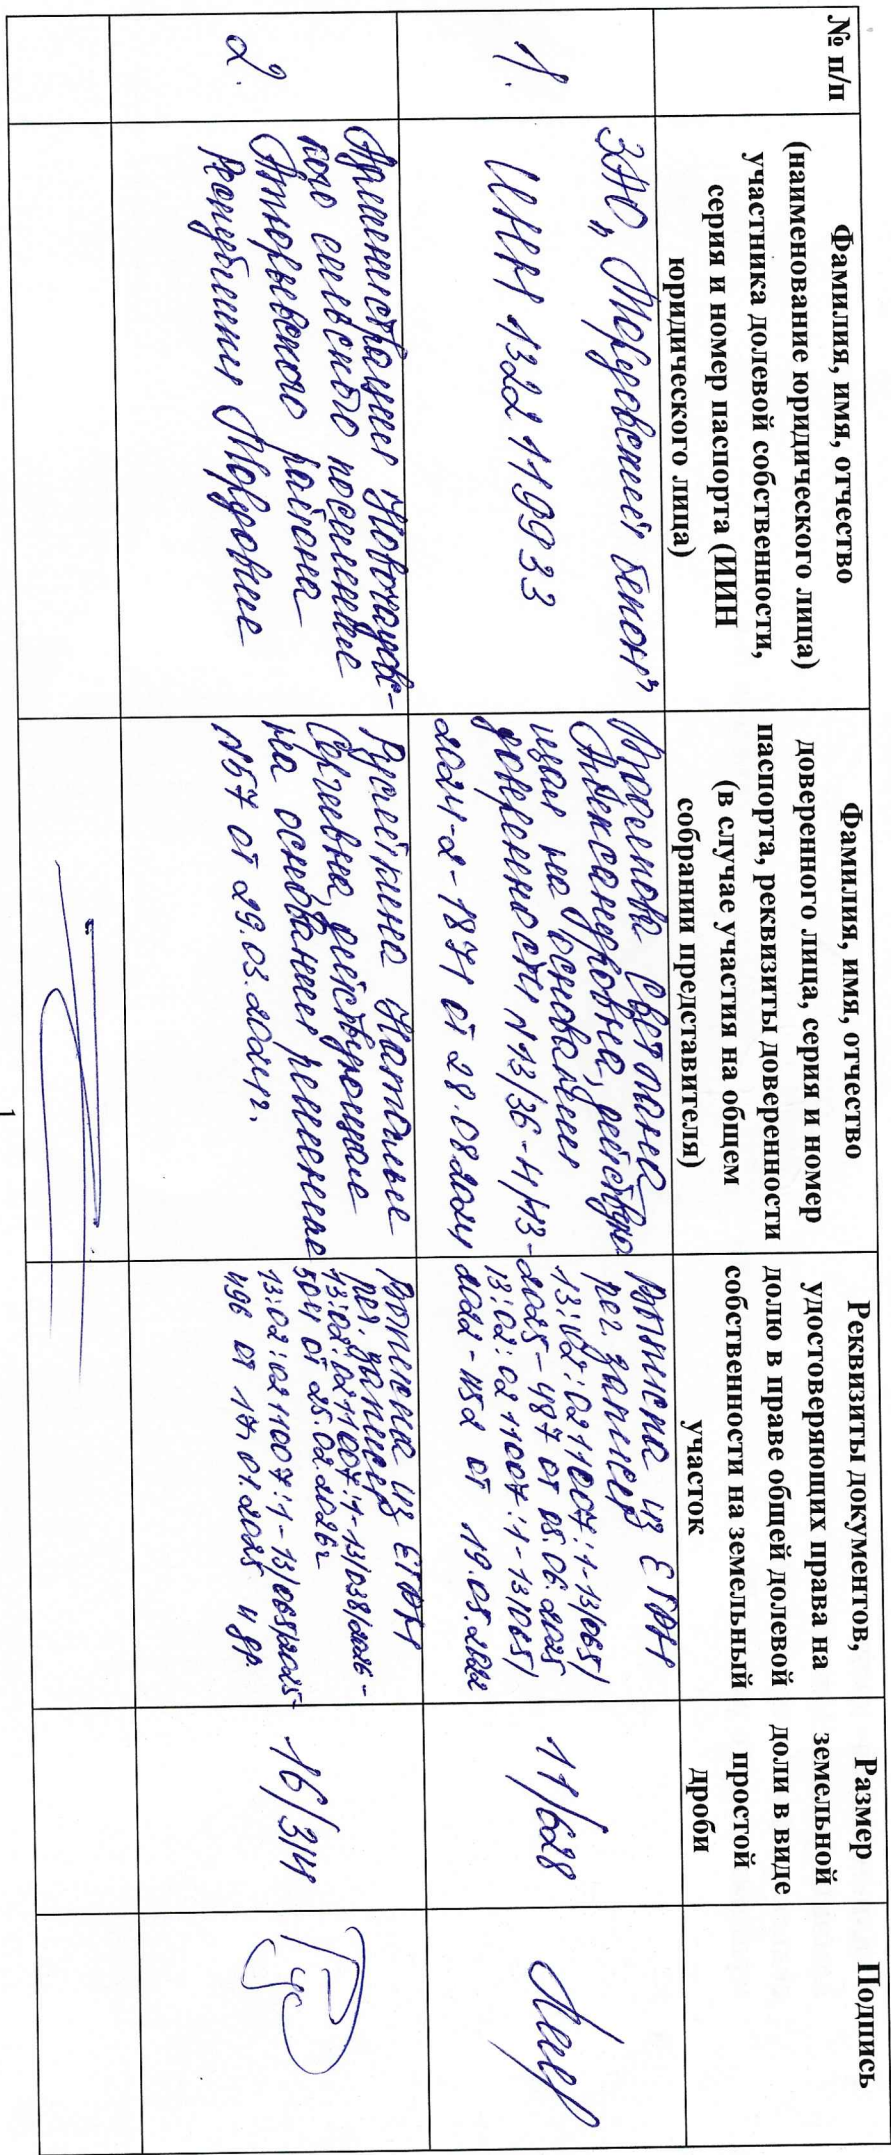 № п/п
Фамилия, имя, отчество
(наименование юридического лица)
участника долевой собственности,
серия и номер паспорта (ИИН
юридического лица)
Фамилия, имя, отчество
доверенного лица, серия и номер
паспорта, реквизиты доверенности
(в случае участия на общем
собрании представителя)
Реквизиты документов,
удостоверяющих права на
долю в праве общей долевой
собственности на земельный
участок
Размер
земельной
доли в виде
простой
дроби
Подпись
1.
ЗАО „Мордовский бекон"
ИНН 1322119933
Светлана
Александровна, действую
щая на основании
доверенности №13/36-н/13-
2024-2-1871 от 28.08.2024
Выписка из ЕГРН
рег. записи
13:02:0211007:1-13/065/
2025-487 от 05.06.2025
13:02:0211007:1-13/065/
2022-452 от 19.05.2022
11/628
2.
Администрация Новочадов-
кого сельского поселения
Атюрьевского района
Республики Мордовия
Наталья
Сергеевна, действующая
на основании решения
№57 от 29.03.2021г.
Выписка из ЕГРН
рег. записи
13:02:0211007:1-13/038/2026-
504 от 25.02.2026г
13:02:0211007:1-13/065/2025-
496 от 17.01.2025 и др.
16/314
1